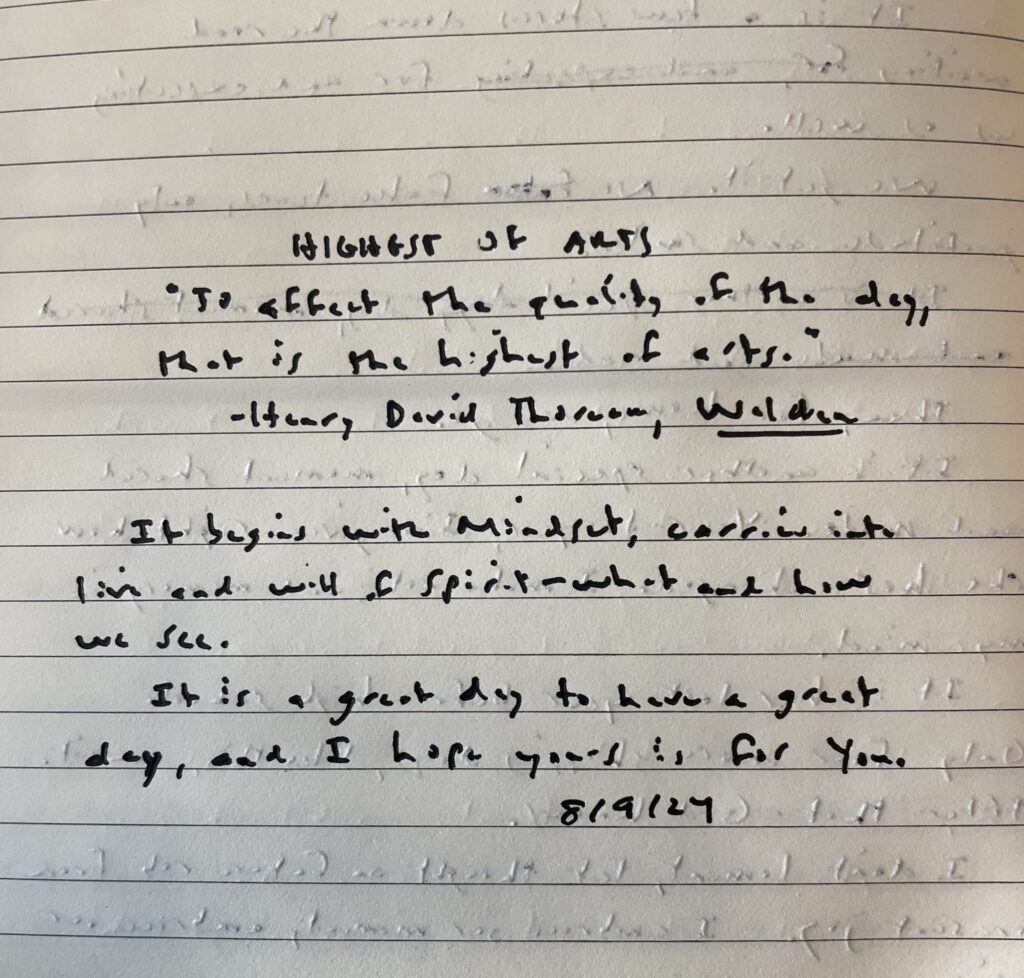 HIGHEST OF ARTS
"To affect the quality of the day,
that is the highest of arts."
-Henry David Thoreau, Walden
It begins with Mindset, carries into
live and will of spirit - what and how
we see.
It is a great day to have a great
day, and I hope yours is for you.
8/9/24